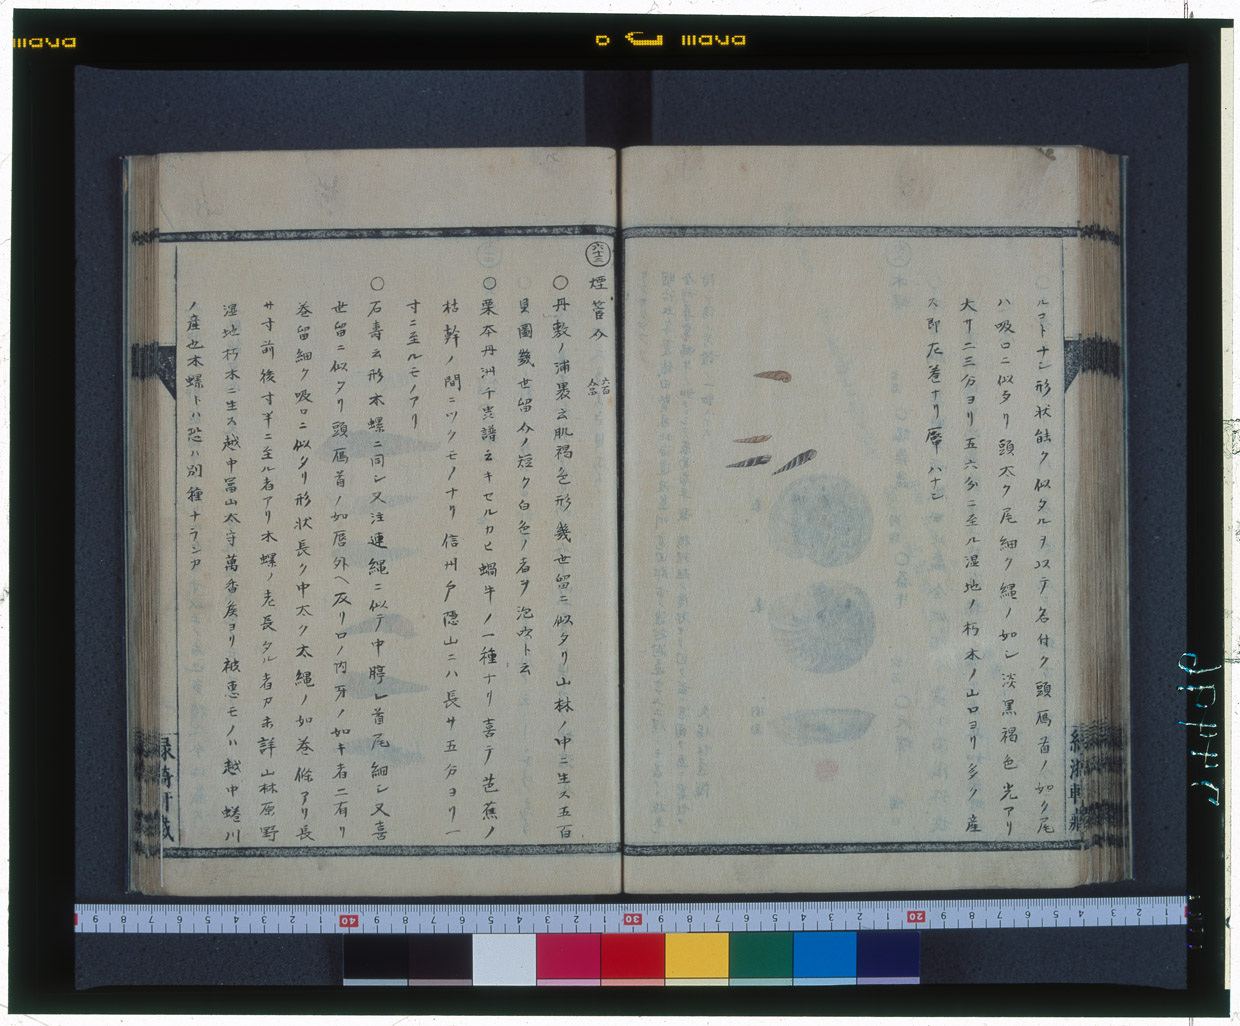 ルコトナシ形状能ク似タルヲ以テ名付ク頭馬首ノ如ク尾
ハ吸口ニ似タリ頭太ク尾細ク縄ノ如シ淡黒褐色光アリ
大サ二三分ヨリ五六分ニ至ル湿地ノ朽木ノ山口ヨリ多ノ産
ス即左巻ナリ厴ハナシ
六十三
煙管介
○丹敷ノ浦裏云肌褐色形幾世留ニ似タリ山林ノ中ニ生ス五百
貝圖幾世留介ノ短ク白色ノ者ヲ泡吹ト云
○栗本丹洲千蟲譜云キセルカヒ蝸牛ノ一種ナリ喜テ芭蕉ノ
枯幹ノ間ニツクモノナリ信州戸隠山ニハ長サ五分ヨリ一
寸ニ至ルモノアリ
○石壽云形木螺ニ同シ又注連縄ニ似テ中脝レ首尾細シ又喜
世留ニ似タリ頭馬首ノ如唇外ヘ反リ口ノ内牙ノ如キ者二有リ
巻留細ク吸口ニ似タリ形状長ク中太ク太縄ノ如巻條アリ長
サ寸前後寸半ニ至ル者アリ木螺ノ老長タル者カ未詳山林原野
湿地朽木ニ生ス越中冨山太守萬香矦ヨリ被恵モノハ越中蜷川
ノ産也木螺トハ恐ハ別種ナランカ